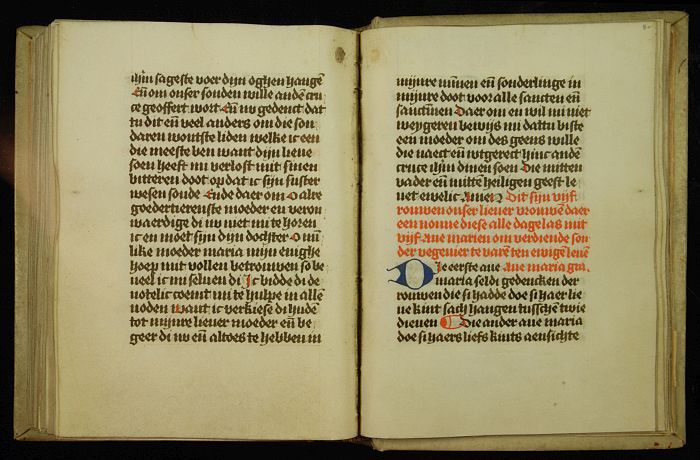 ihm sageste voer dijn oghen hangē
Eñ om onser sonden wille andē cru
ce geoffert wort Eñ nv gedenct dat
tu dit eñ veel anders om die son
daren woutste liden welke ic een
die meeste ben want dijn lieue
soen heeft mi verlost mit sinen
bitteren doot op dat ic sijn suster
wesen soude Ende daer om O alre
goedertierenste moeder eñ verou
waerdige di nv niet mi te horen
ic en moet sijn dijn dochter O mī
like moeder maria mijn enighe
hoep mit vollen betrouwen so be
ueel ic mi seluen di Ic bidde di de
notelic coemt mi te hulpe in allē
noden want ic verkiese di hudē
tot mijnre lieuer moeder eñ be
geer di nv eñ altoes te hebben in
mijnre minnen eñ sonderlinge in
mijnre doot voor alle sancten eñ
sanctinnen Daer om en wil mi niet
weygeren bewijs mi dattu biste
een moeder om des geens wille
die naect eñ wtgerect hinc andē
cruce ihm dinen soen Die mitten
vader eñ mittē heiligen geest le
uet ewelic Amen Dit sijn vijf
rouwen onser lieuer vrouwē daer
een nonne diese alle dage las mit
vijf aue marien om verdiende son
der vegeuier te varē ten ewigē leuē
Die eerste aue Aue maria gra.
maria seldi gedencken der
rouwen die si hadde doe si haer lie
ue kint sach hangen tusschē twie
dieuen Die ander aue maria
doe si haers liefs kints aensichte